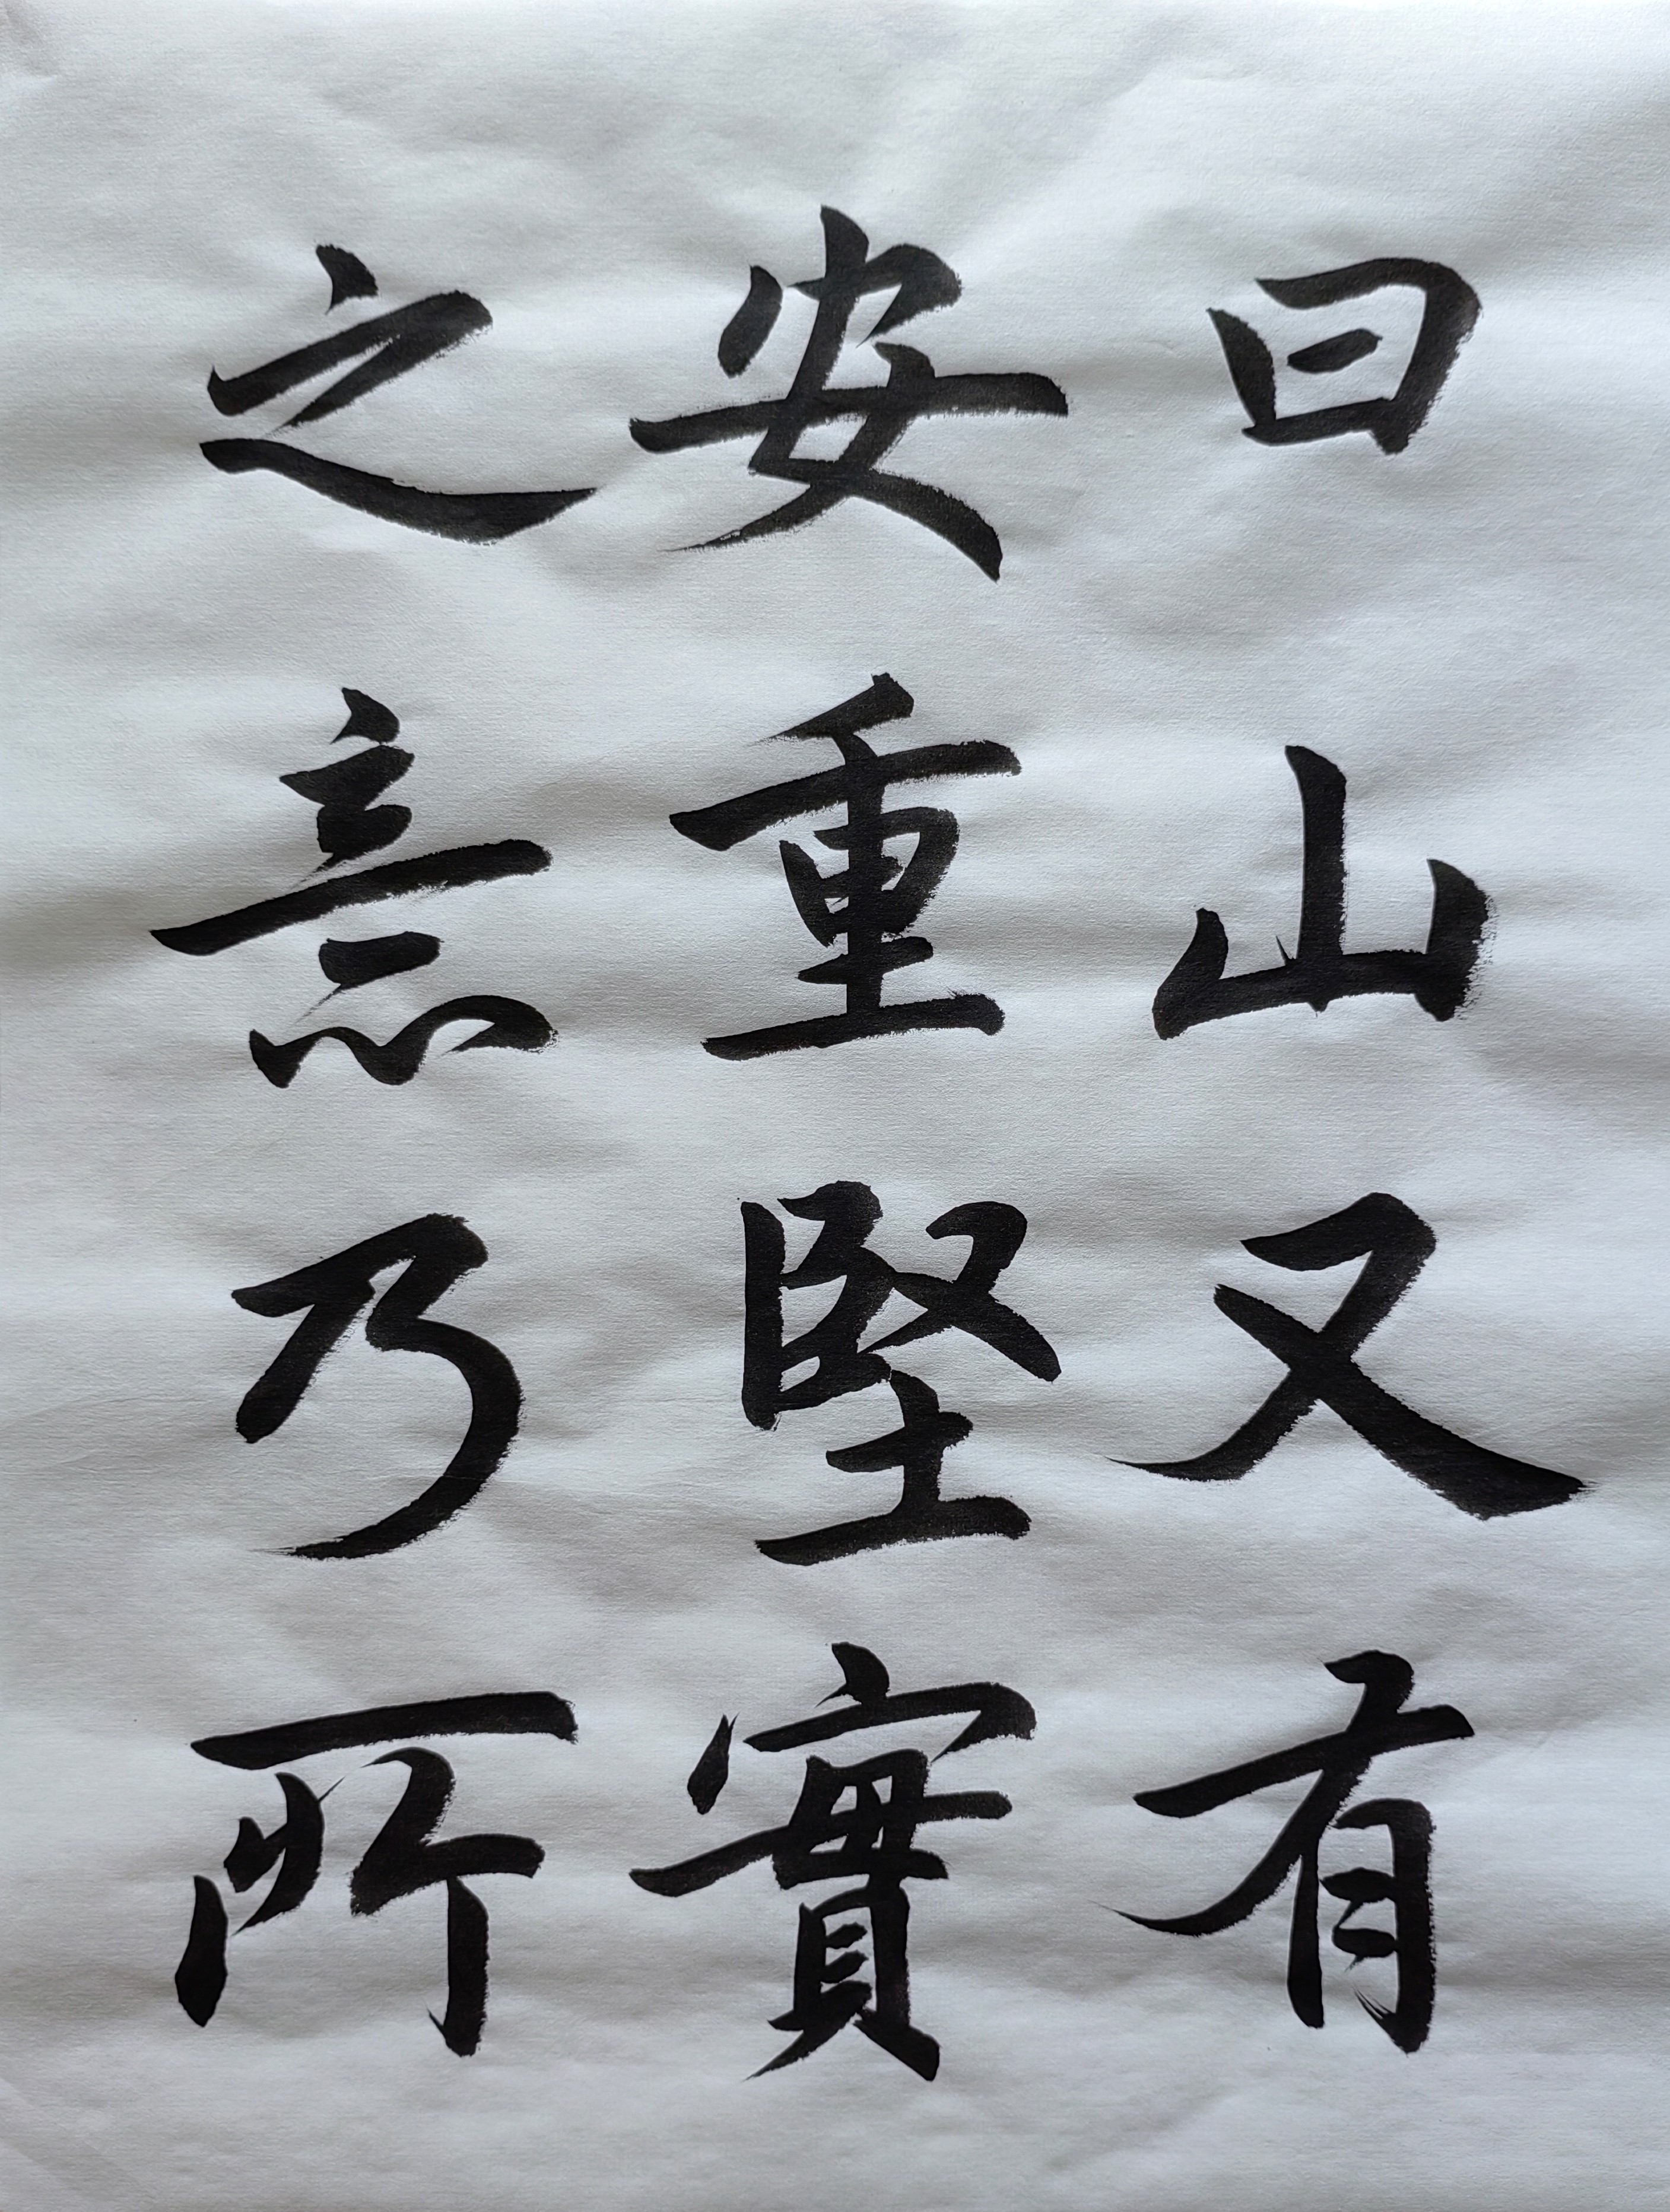 曰山又有
安重堅實
之意乃所